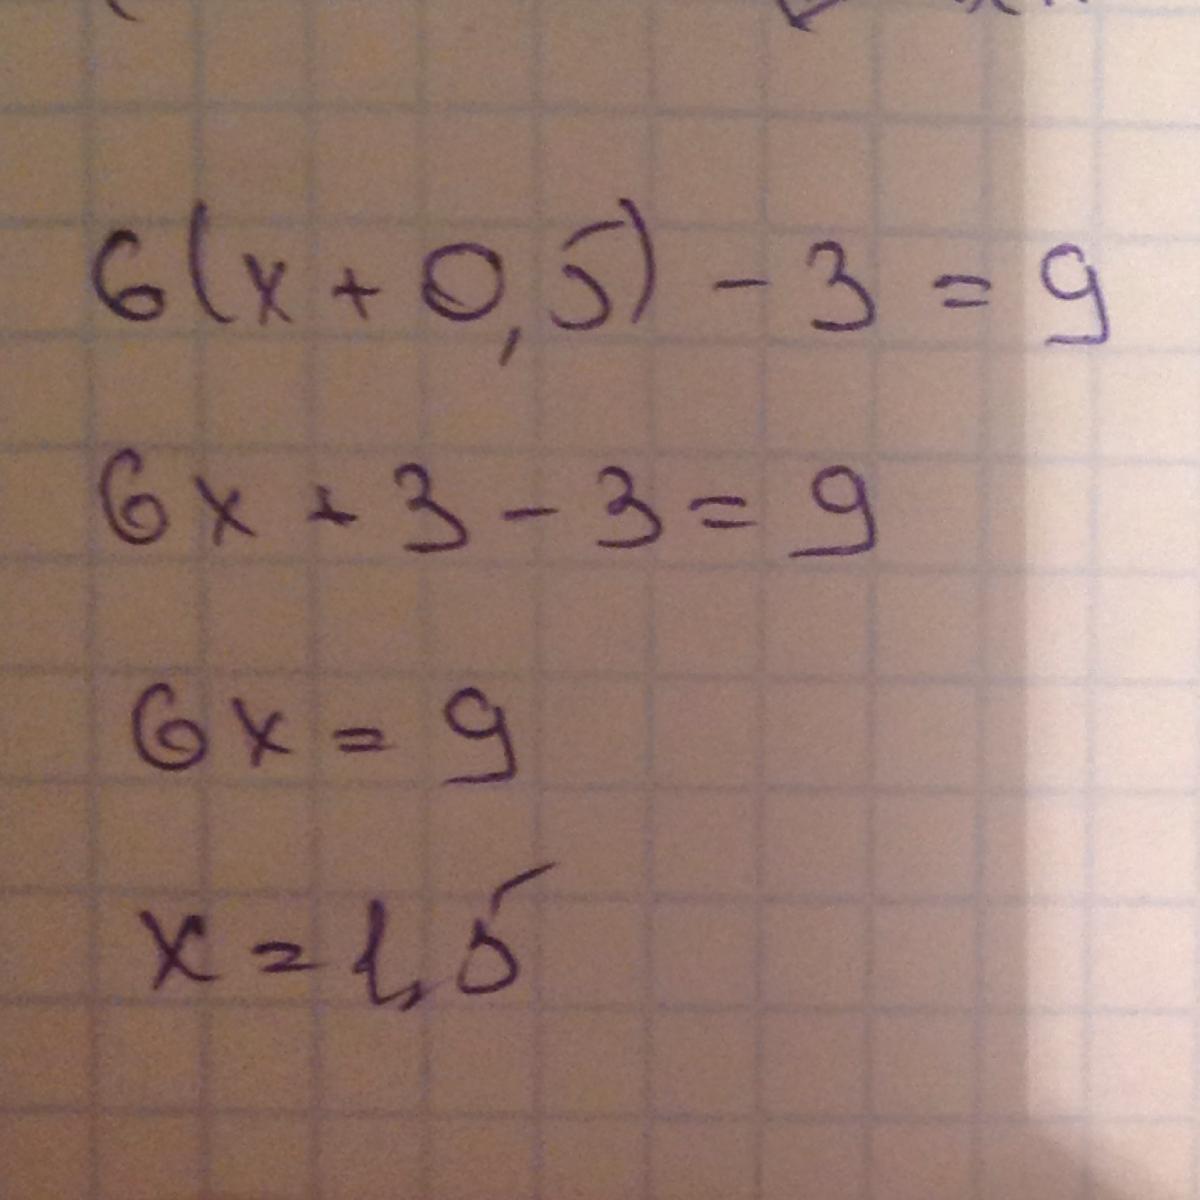 6(x + 0,5) - 3 = 9
6x + 3 - 3 = 9
6x = 9
x = 1,5